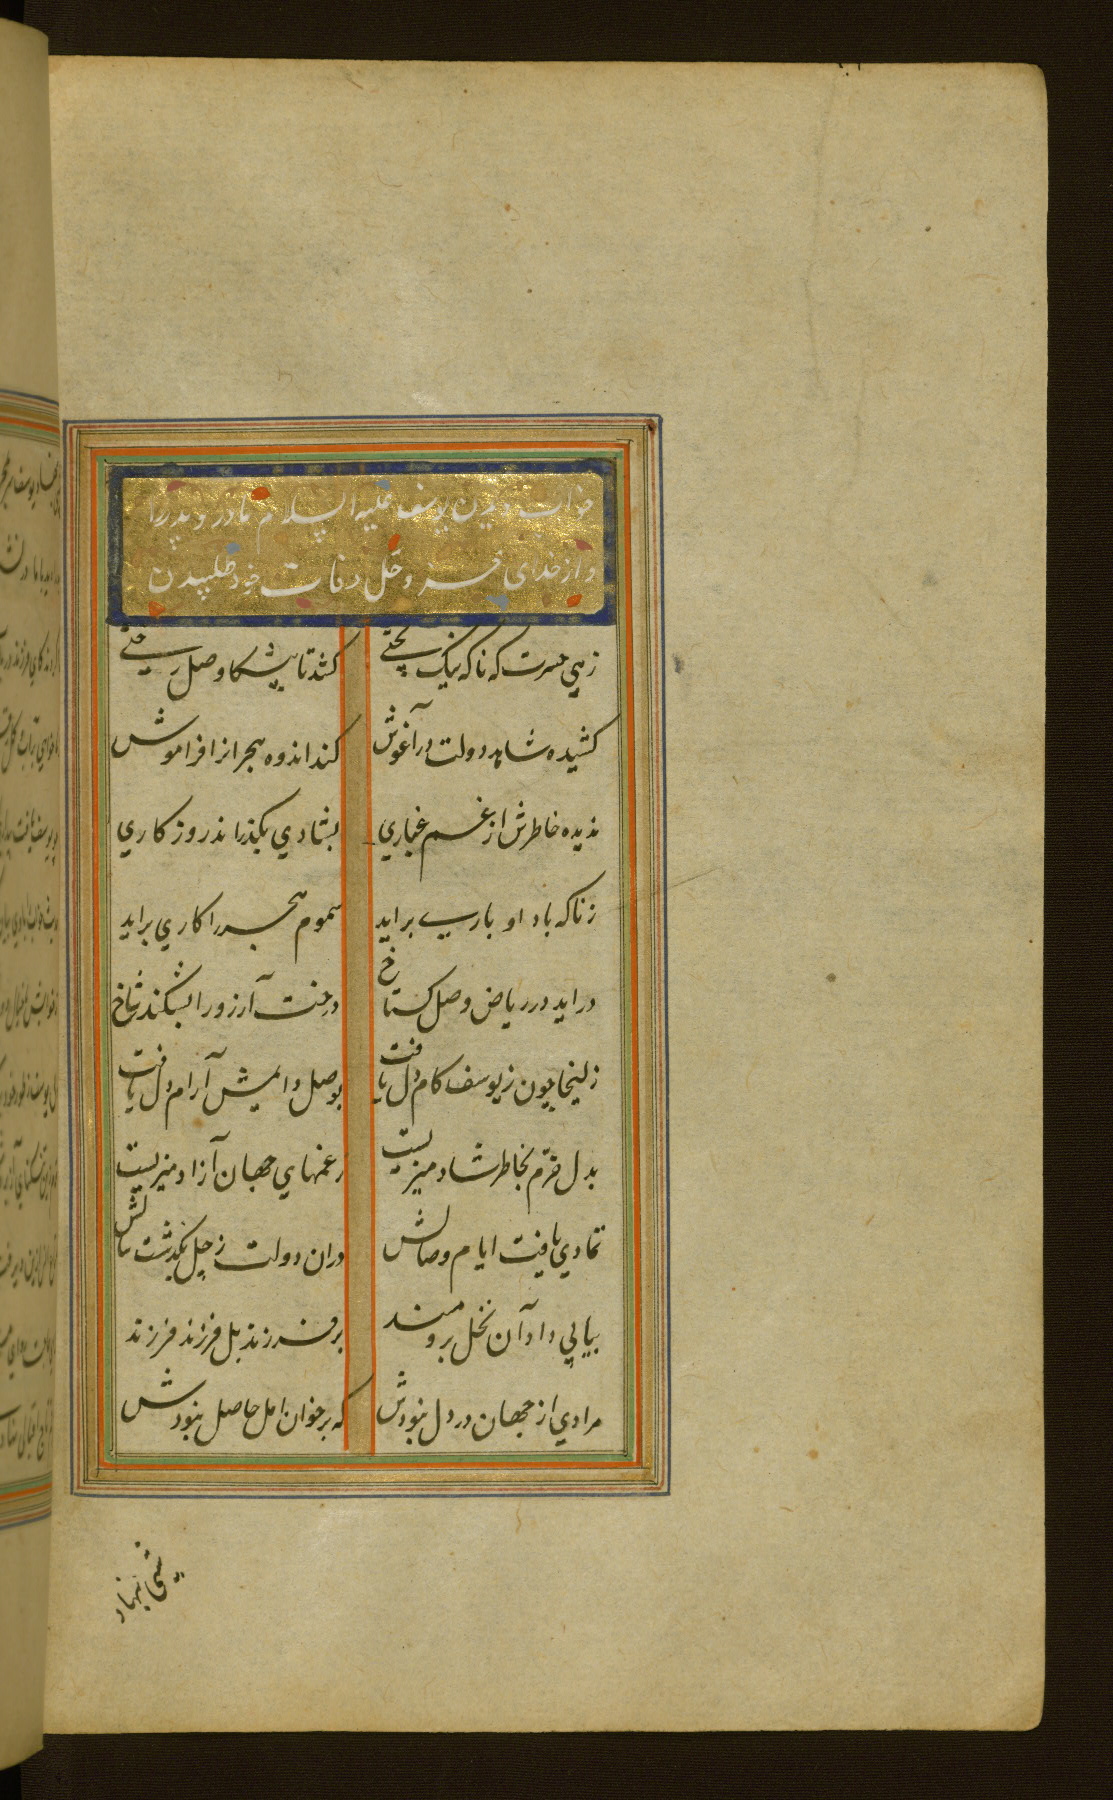 خواب دیدن یوسف علیه السلام مادر و پدر را
و از خدای خود وفات طلبیدن
زهی حسرت که ناکه نیک بختی
کشد تا پیشکاه وصل رختی
کشیده شاهد دولت در آغوش
کند اندوه هجرانرا فراموش
ندیده خاطرش از غم غباری
بشادی بکذراند روزکاری
زناکه باد ادباری براید
سموم هجر را کاری براید
دراید در ریاض وصل کستاخ
درخت آرزو را بشکند شاخ
زلیخا چون ز یوسف کام دل یافت
بوصل دایمش آرام دل یافت
بدل خرّم بخاطر شاد میزیست
ز غمهای جهان آزاد میزیست
تمادی یافت ایام وصالش
دران دولت ز چل بکذشت سالش
بیاپی داد آن نخل برومند
بر فرزند بل فرزند فرزند
مرادی از جهان در دل نبودش
که بر خوان امل حاصل نبودش
شبی بنهاد